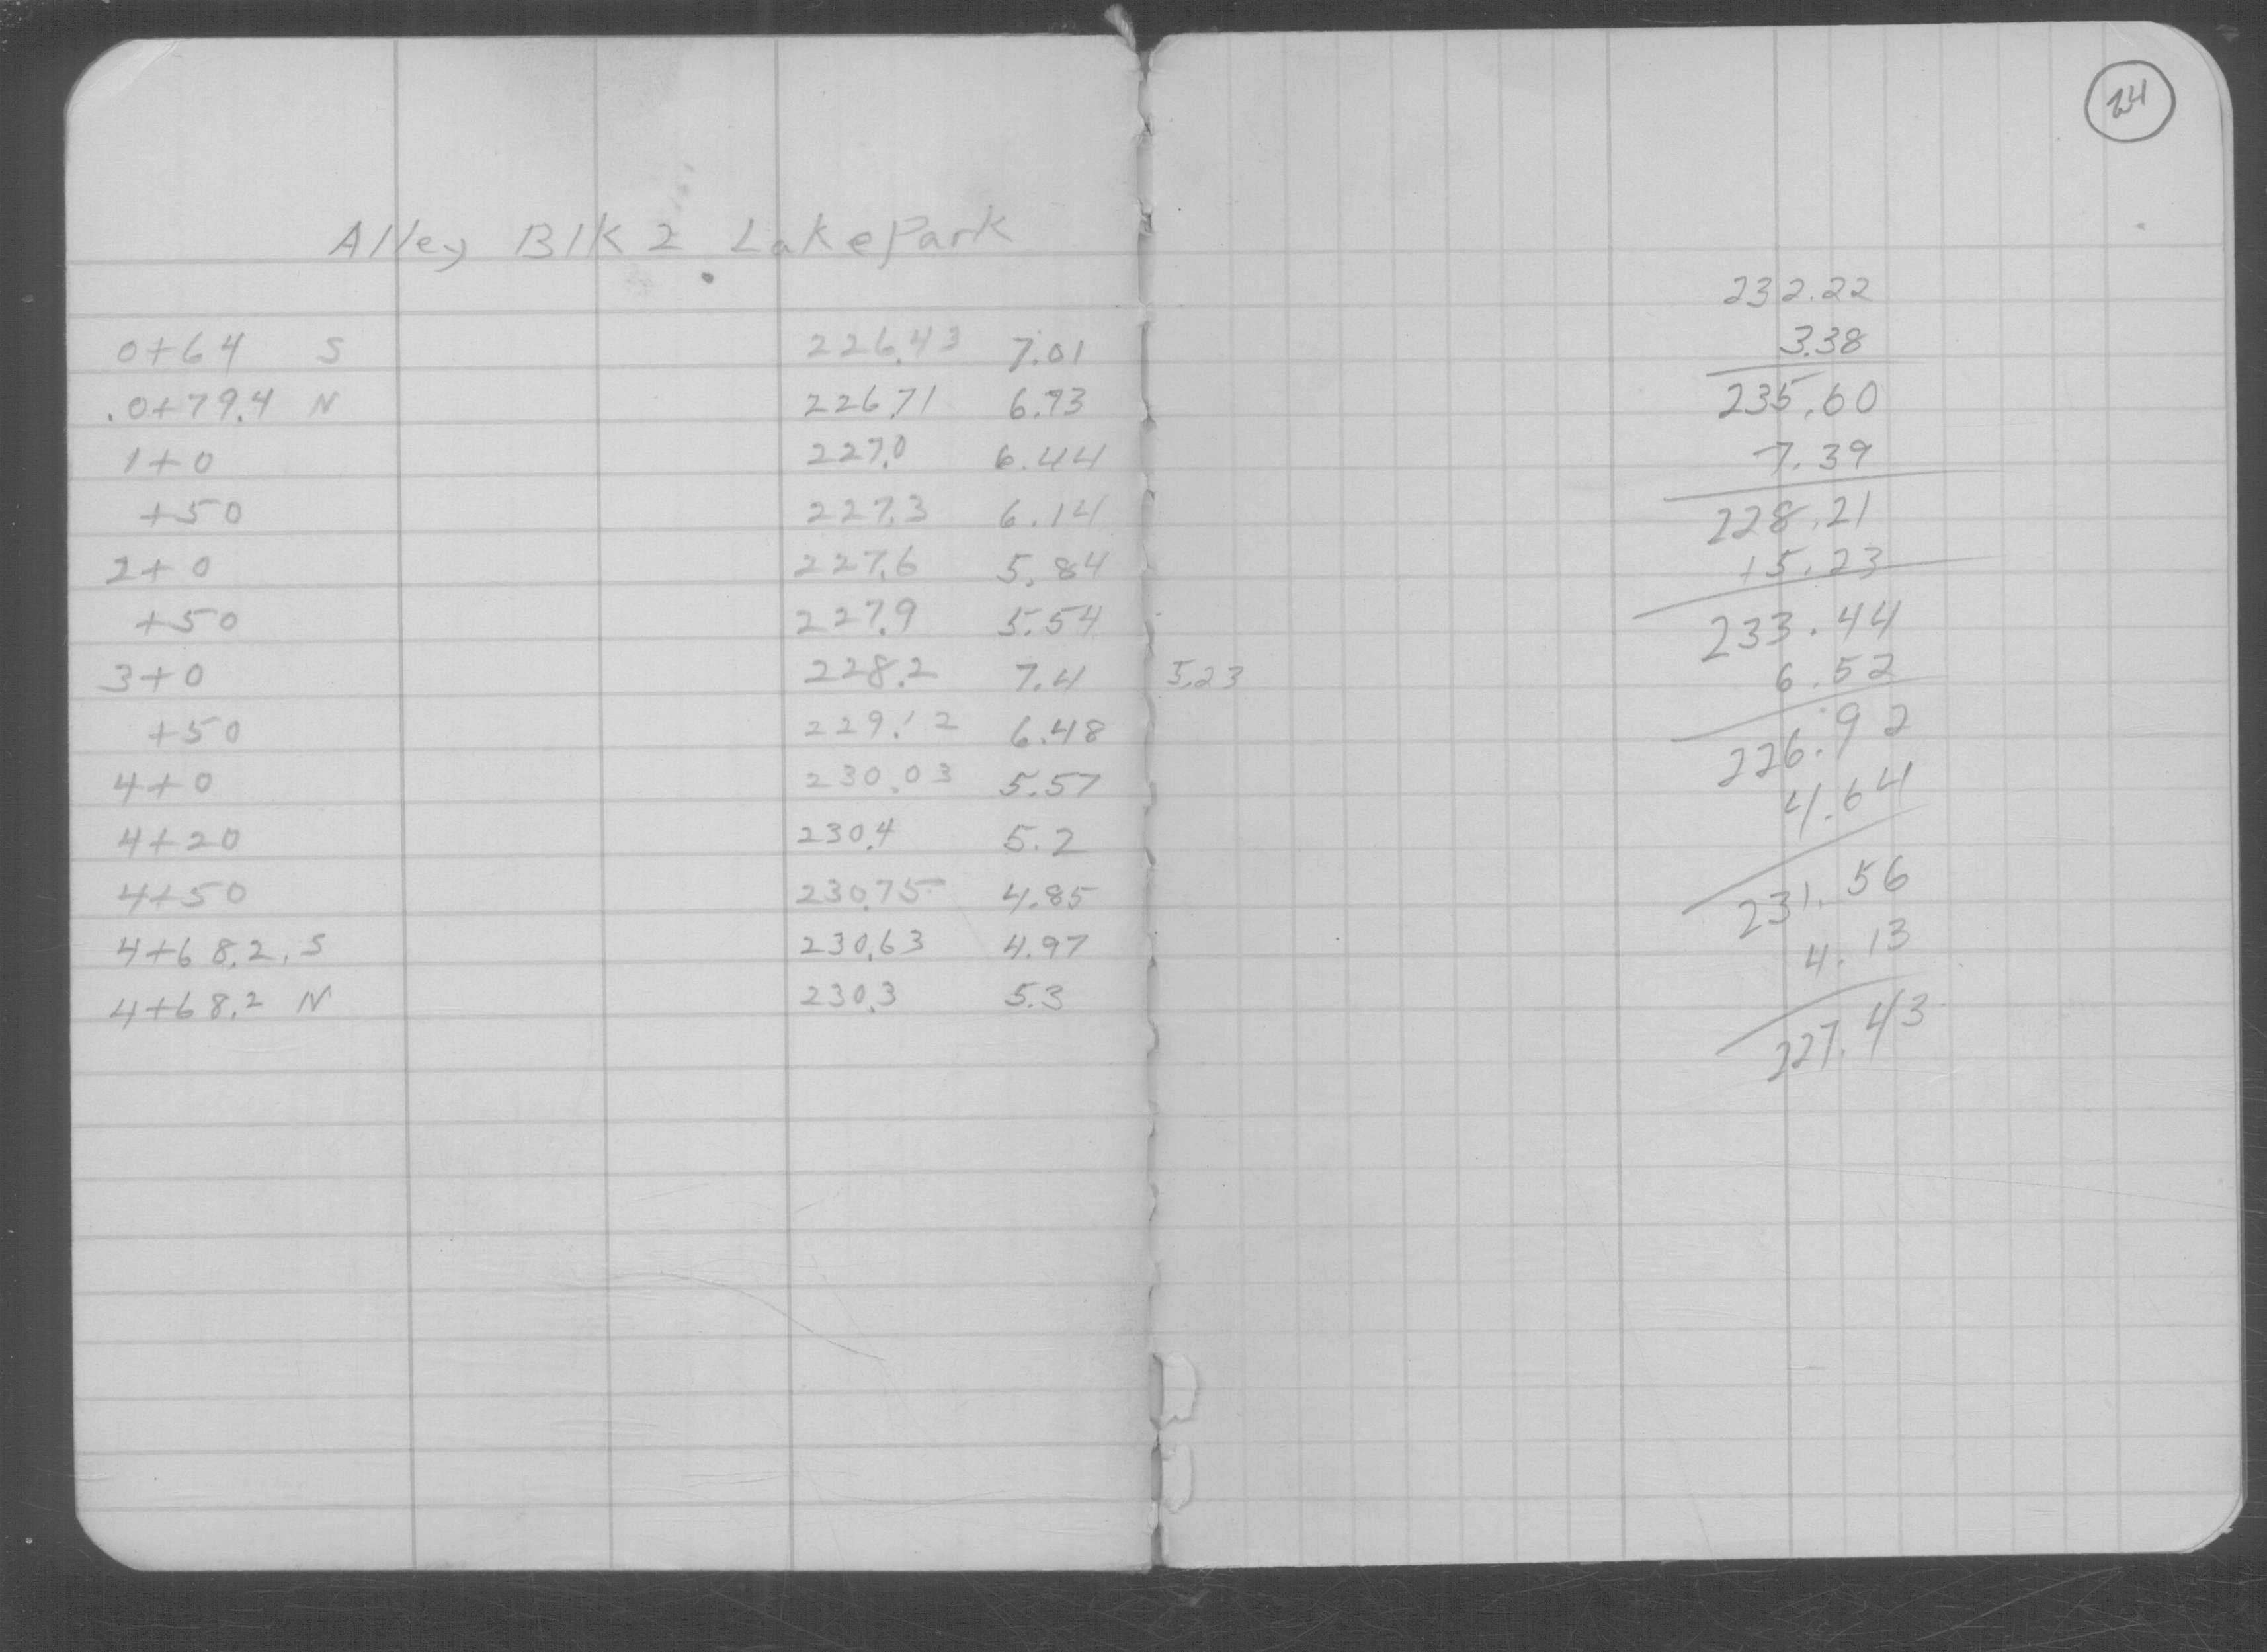 Alley Blk 2 Lake Park
0+64 S 226.43 7.01
.0+79.4 N 226.71 6.73
1+0 227.0 6.44
+50 227.3 6.14
2+0 227.6 5.84
+50 227.9 5.54
3+0 228.2 7.4 5.23
+50 229.12 6.48
4+0 230.03 5.57
4+20 230.4 5.2
4+50 230.75 4.85
4+68.2.S 230.63 4.97
4+68.2 N 230.3 5.3
24
232.22
3.38
235.60
7.39
228.21
+5.23
233.44
6.52
226.92
4.64
231.56
4.13
227.43